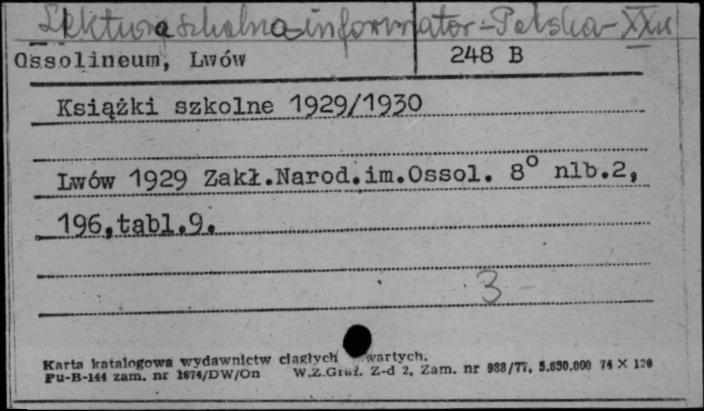 Lektura szkolna-informator-Polska-XXw
Ossolineum, Lwów 248 B
Książki szkolne 1929/1930
Lwów 1929 Zakł.Narod.im.Ossol. 8° nlb.2,
196,tabl.9.
3-
Karta katalogowa wydawnictw ciągłych wartych.
Pu-B-144 zam. nr 1674/DW/On W.Z.Graf. Z-d 2, Zam. nr 988/77, 5.650.000 74 X 120